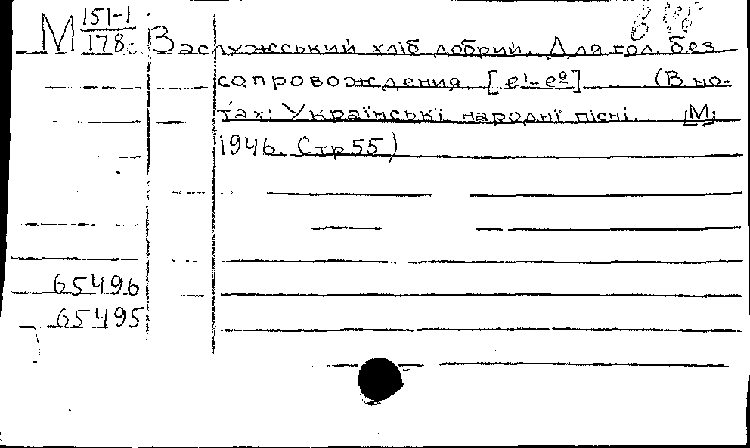 М 151-1
178
Заслужський хліб добрий. Для гол. без
сопровождения. [e¹-e²] (В но-
тах: Українські народні пісні. [М]
1946. Стр 55)
65496
65495